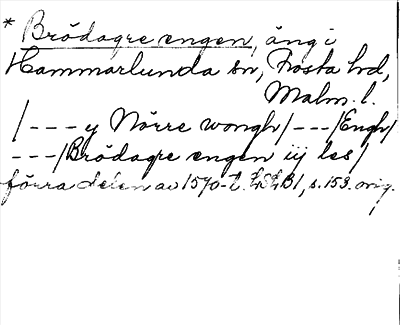 * Brödagre engen, äng i
Hammarlunda sn, Frosta hd,
Malm. l.
/ - - - y Nörre wongh / - - - / Engh /
- - - / Brödagre engen iij les /
förra delen av 1570-t. B1, s. 153. orig.